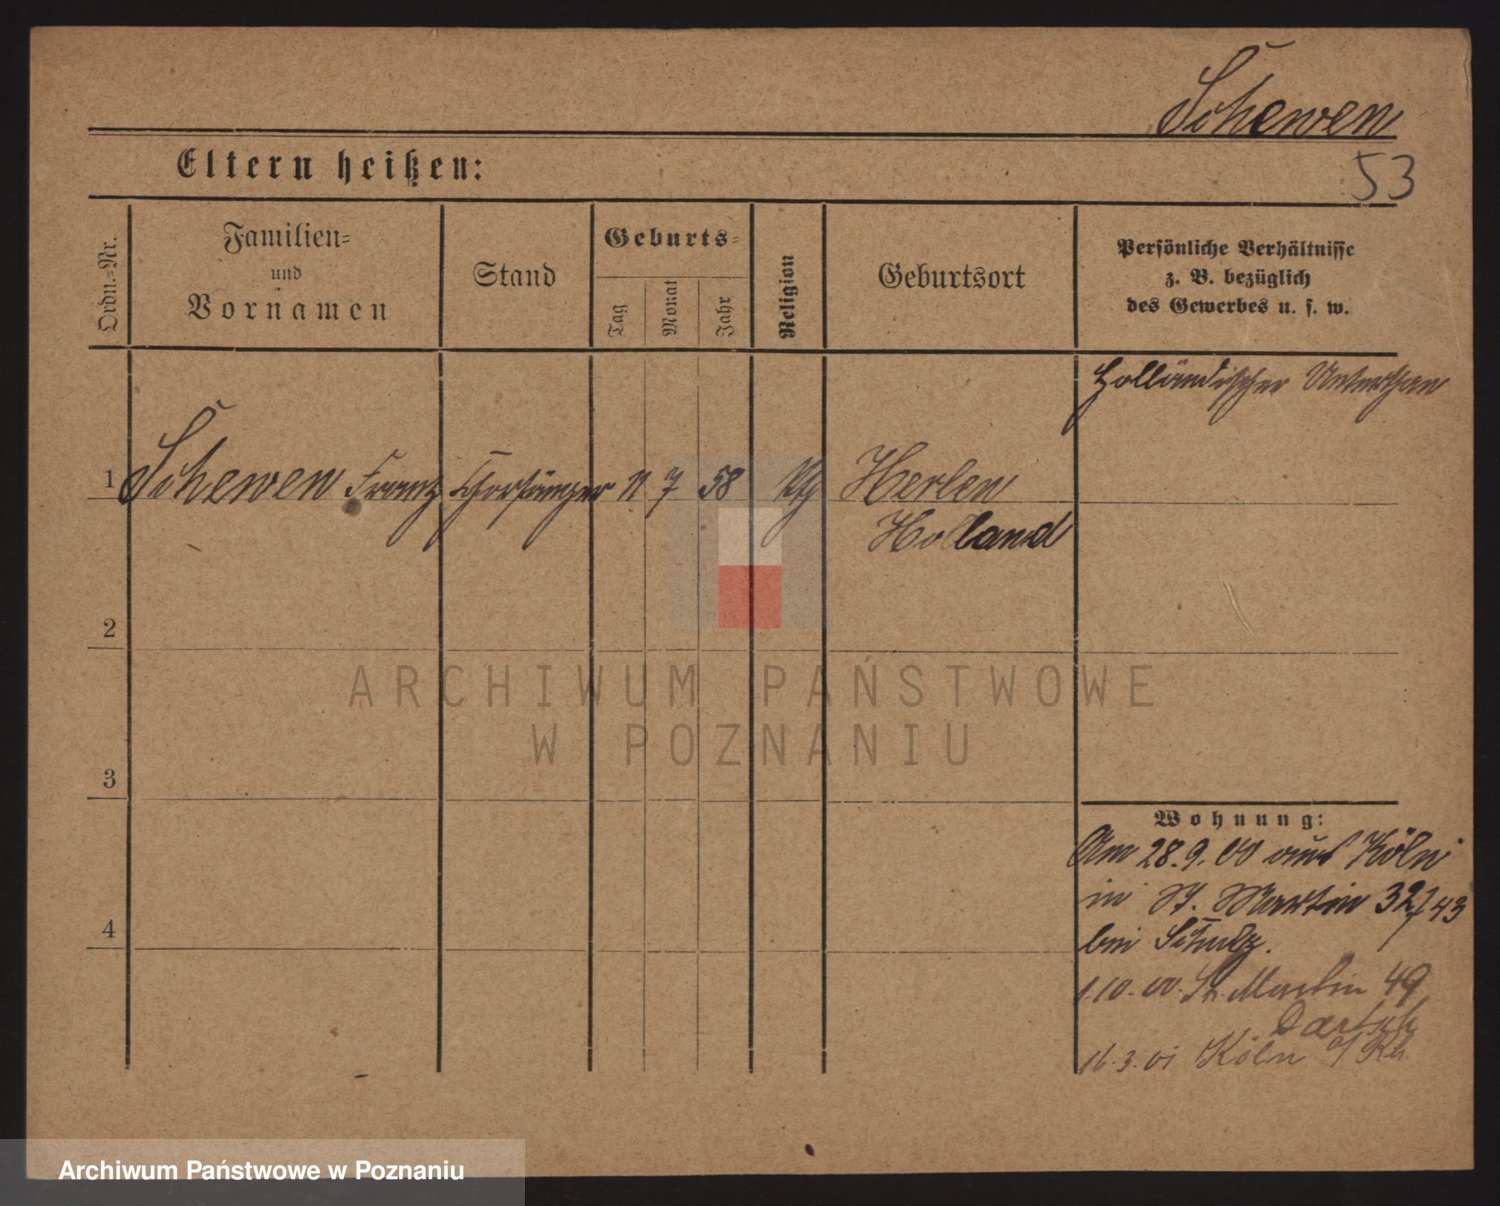 Schewen
53
Eltern heißen:
Ordn.-Nr.
Familien-
und
Vornamen
Stand
Geburts-
Tag
Monat
Jahr
Religion
Geburtsort
Persönliche Verhältnisse
z. B. bezüglich
des Gewerbes u. s. w.
Holländischer Unterthan
1 Schewen Franz Chorsänger 11 7 58 Herlen
Holland
2
3
4
Wohnung:
Am 28.9.00 aus Köln
in St. Martin 32/43
bei Schulz.
1.10.00. St. Martin 49
Bartsch
16.3.01 Köln a/Rh.
ARCHIWUM PAŃSTWOWE
W POZNANIU
Archiwum Państwowe w Poznaniu